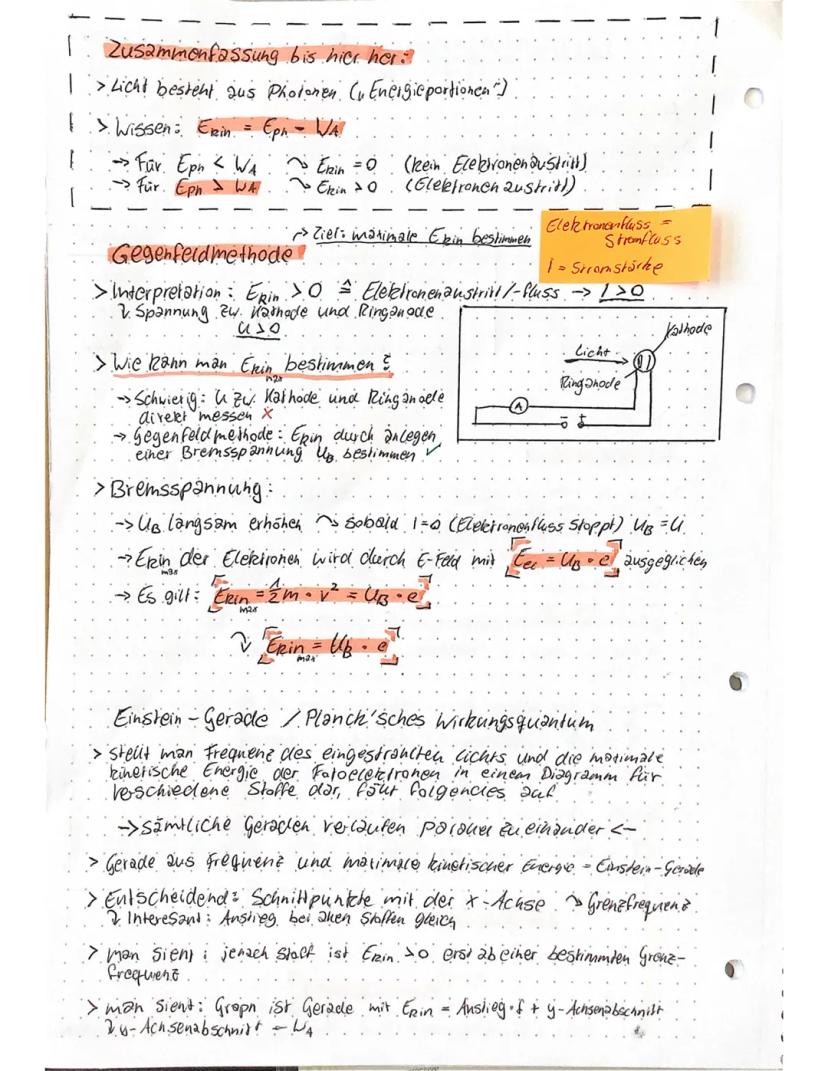 Zusammenfassung bis hier her:
> Licht besteht aus Photonen („Energieportionen")
> Wissen: Ekin = Eph - WA
→ Für Eph < WA ↷ Ekin = 0 (kein Elektronenaustritt)
→ Für Eph > WA ↷ Ekin > 0 (Elektronenaustritt)
Gegenfeldmethode
→ Ziel: maximale Ekin bestimmen
Elektronenfluss =
Stromfluss
I = Stromstärke
> Interpretation: Ekin > 0 ≙ Elektronenaustritt/-fluss → I > 0
↴ Spannung zw. Kathode und Ringanode
U > 0
> Wie kann man Ekin max bestimmen?
→ Schwierig: U zw. Kathode und Ringanode
direkt messen ✗
→ Gegenfeldmethode: Ekin durch anlegen
einer Bremsspannung UB bestimmen ✓
Kathode
Licht
Ringanode
A
- +
> Bremsspannung:
→ UB langsam erhöhen ↷ sobald I=0 (Elektronenfluss stoppt) UB = U
→ Ekin max der Elektronen wird durch E-Feld mit [Eel = UB · e] ausgeglichen
→ Es gilt: [Ekin max = 1/2 m · v² = UB · e]
↷ [Ekin max = UB · e]
Einstein-Gerade / Planck'sches Wirkungsquantum
> stellt man Frequenz des eingestrahlten Lichts und die maximale
kinetische Energie der Fotoelektronen in einem Diagramm für
verschiedene Stoffe dar, fällt folgendes auf
→ sämtliche Geraden verlaufen parallel zu einander ←
> Gerade aus Frequenz und maximale kinetischer Energie = Einstein-Gerade
> Entscheidend: Schnittpunkte mit der x-Achse ↷ Grenzfrequenz
↴ Interesant: Anstieg bei allen Stoffen gleich
> man sieht: jenach Stoff ist Ekin > 0 erst ab einer bestimmten Grenz-
frequenz
> man sieht: Graph ist Gerade mit Ekin = Anstieg · f + y-Achsenabschnitt
↴ y-Achsenabschnitt = WA